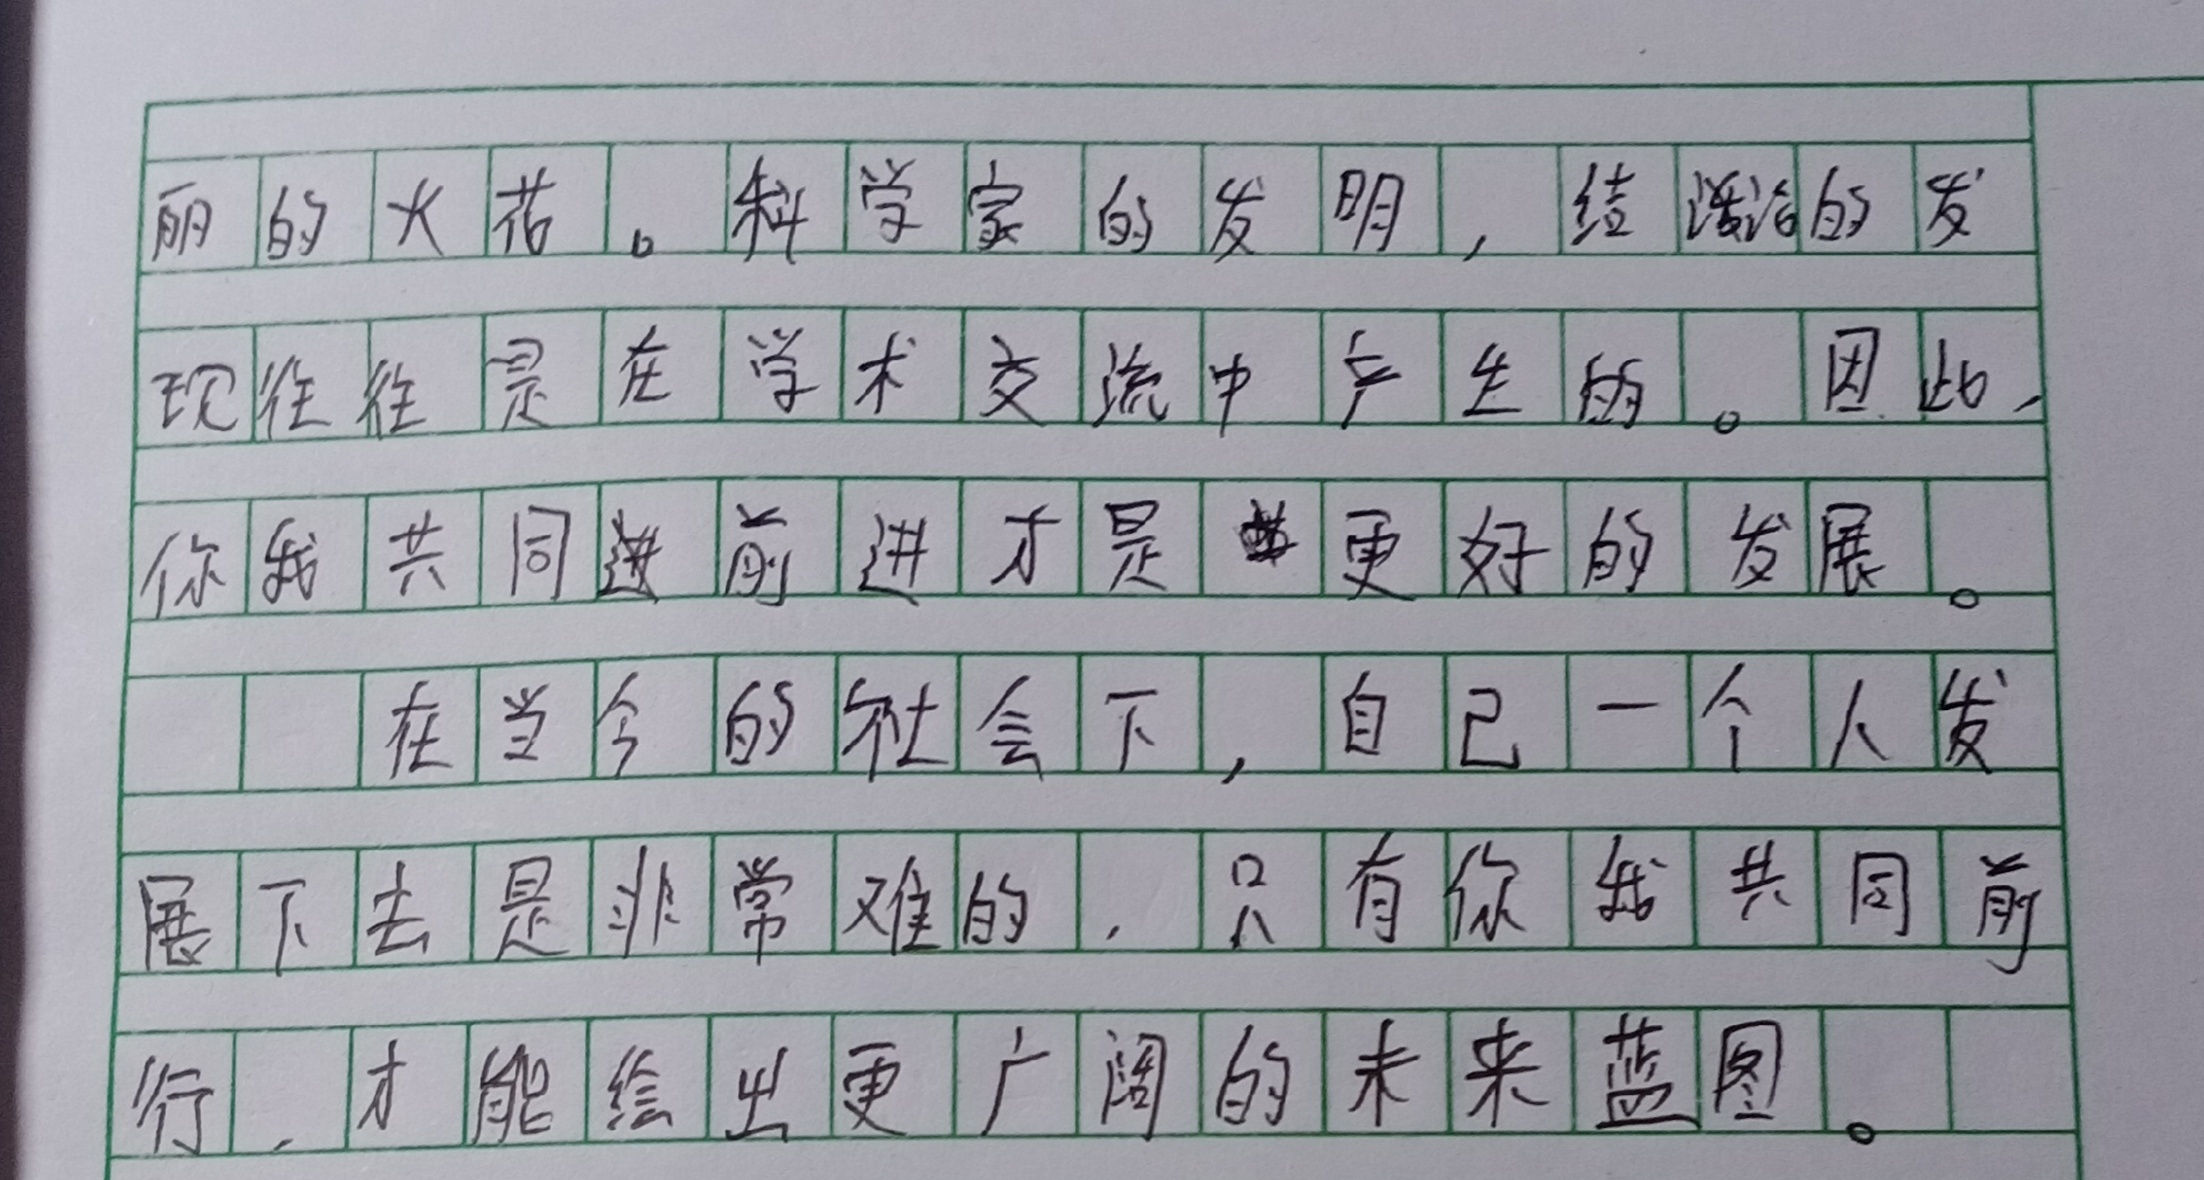 丽的火花。科学家的发明,结论的发
现往往是在学术交流中产生的。因此,
你我共同前进才是更好的发展。
在当今的社会下,自己一个人发
展下去是非常难的,只有你我共同前
行,才能绘出更广阔的未来蓝图。